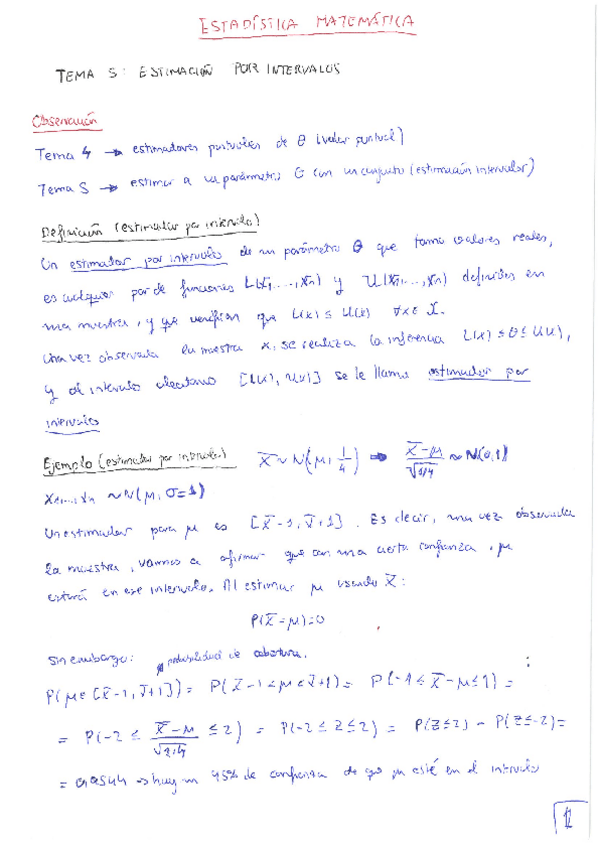 ESTADÍSTICA MATEMÁTICA
TEMA 5: ESTIMACIÓN POR INTERVALOS
Observación
Tema 4 → estimadores puntuales de θ (valor puntual)
Tema 5 → estimar a un parámetro θ con un conjunto (estimación intervalos)
Definición (estimador por intervalo)
Un estimador por intervalos de un parámetro θ que toma valores reales,
es cualquier par de funciones L(x₁,...,xₙ) y U(x₁,...,xₙ) definidas en
una muestra, y que verifican que L(x) ≤ U(x) ∀x∈ X.
Una vez observada la muestra x, se realiza la inferencia L(x) ≤ θ ≤ U(x),
y al intervalo aleatorio [L(x), U(x)] se le llama estimador por
intervalos
Ejemplo (estimador por intervalo) X̄ ~ N(μ, 1/4) → (X̄-μ)/√(1/4) ~ N(0,1)
X₁,...,Xₙ ~ N(μ, σ=1)
Un estimador para μ es [X̄-1, X̄+1]. Es decir, una vez observada
la muestra, vamos a afirmar que con una cierta confianza, μ
estará en ese intervalo. Al estimar μ usando X̄:
P(X̄=μ)=0
Sin embargo: probabilidad de cobertura.
P(μ∈[X̄-1, X̄+1]) = P(X̄-1≤μ≤X̄+1) = P(-1≤X̄-μ≤1) =
= P(-2 ≤ (X̄-μ)/√(1/4) ≤ 2) = P(-2≤Z≤2) = P(Z≤2) - P(Z≤-2) =
= 0,9544 → hay un 95% de confianza de que μ esté en el intervalo